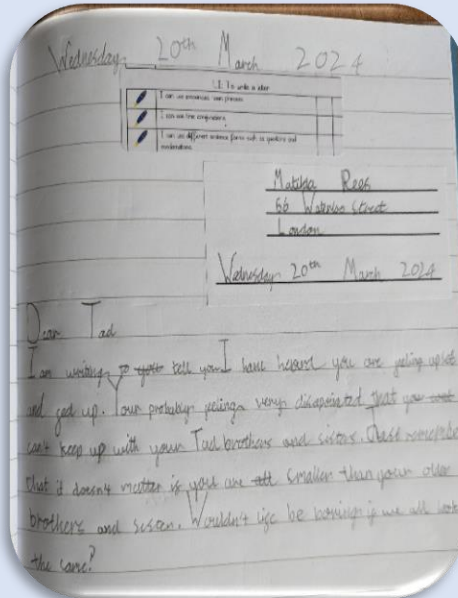 Wednesday 20th March 2024
LI: To write a letter
I can use prepositional noun phrases
I can use time conjunctions.
I can use different sentence forms such as questions and exclamations.
Matilda Rees
66 Waterloo Street
London
Wednesday 20th March 2024
Dear Tad
I am writing to tell you I have heard you are feeling upset
and fed up. Your probably feeling very disapointed that you
can't keep up with your Tad brothers and sisters. Just remember
that it doesn't matter if you are smaller than your older
brothers and sisters. Wouldn't life be boring if we all look
the same?